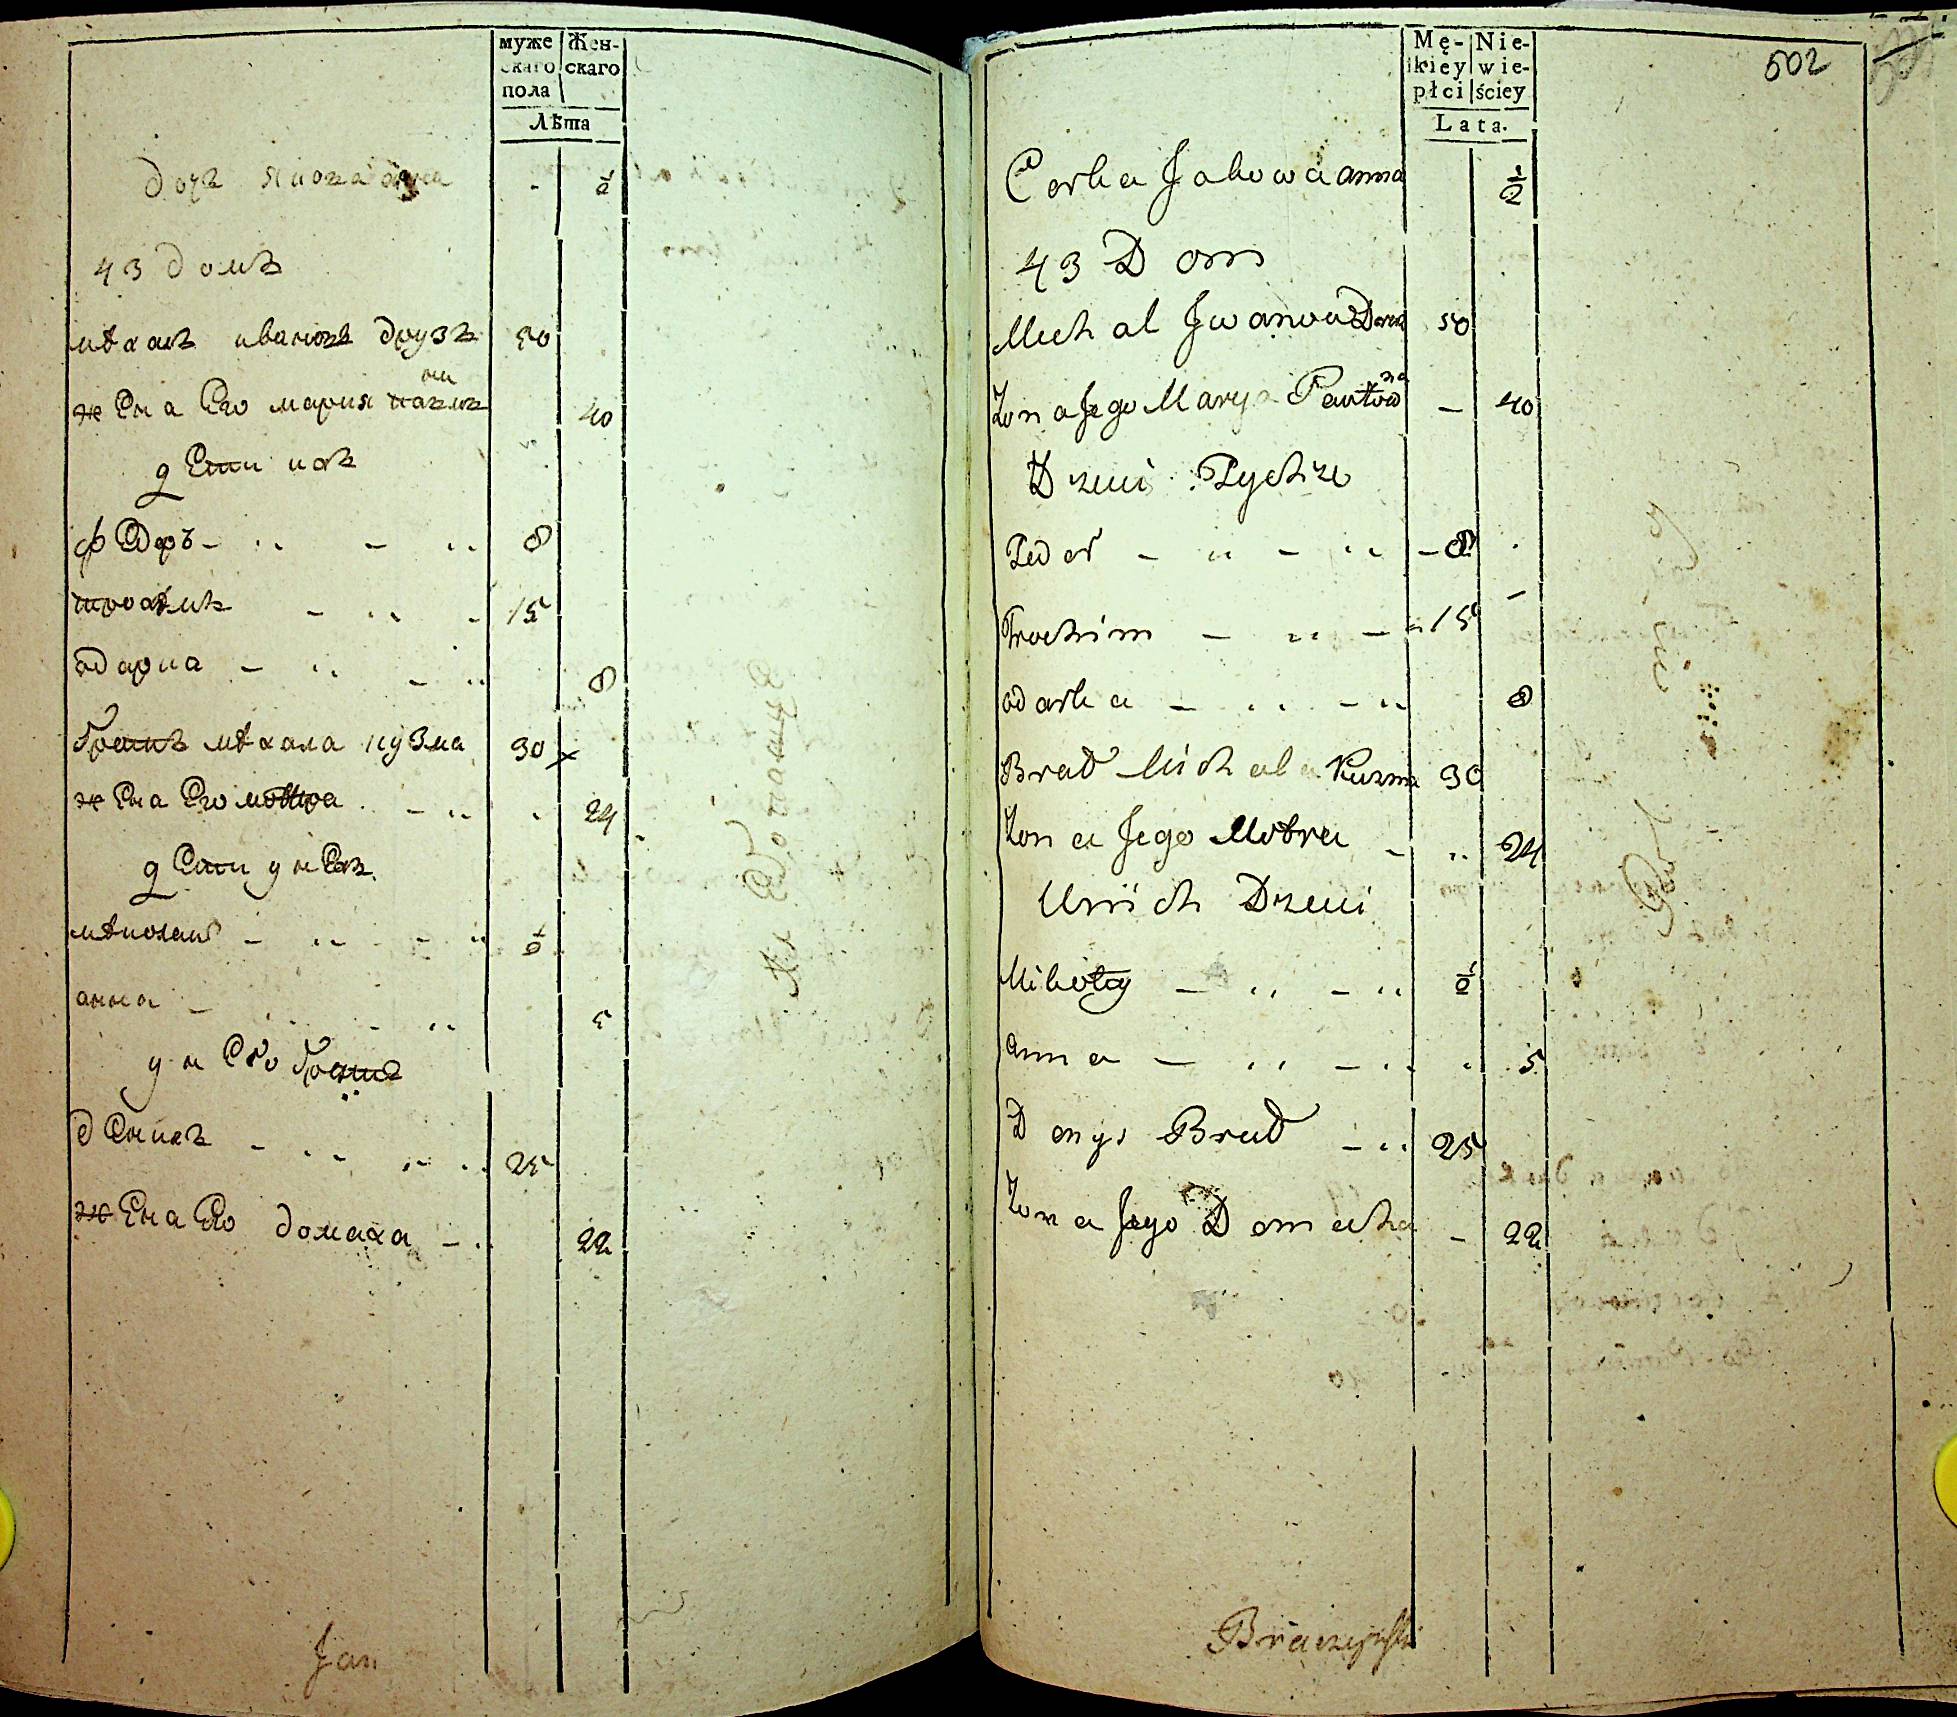 муже
скаго
пола
Жен-
скаго
Лѣта
дочь якова анна - ½
43 домъ
михаль ивановъ друзъ 50
жена его мария павлова 40
дети ихъ
федоръ 8
трохимъ 15
одарка 8
братъ михала кузма 30
жена его мотра 24
дети у нехъ
миколай ½
анна 5
у него братъ
денисъ 25
жена его домаха 22
Jan
502
Mę-
kiey
płci
Nie-
wie-
ściey
Lata.
Corka Jakowa anna ½
43 Dom
Michal Jwanow 50
Zona Jego Marya Pawłowna - 40
Dzeci Tychze
Fedor 8
Trochim 15
odarka 8
Brad Michala Kuzma 30
Zona Jego Motra 24
Unich Dzeci
Mikołay ½
anna 5
Denys Brad 25
Zona Jego Domacha - 22